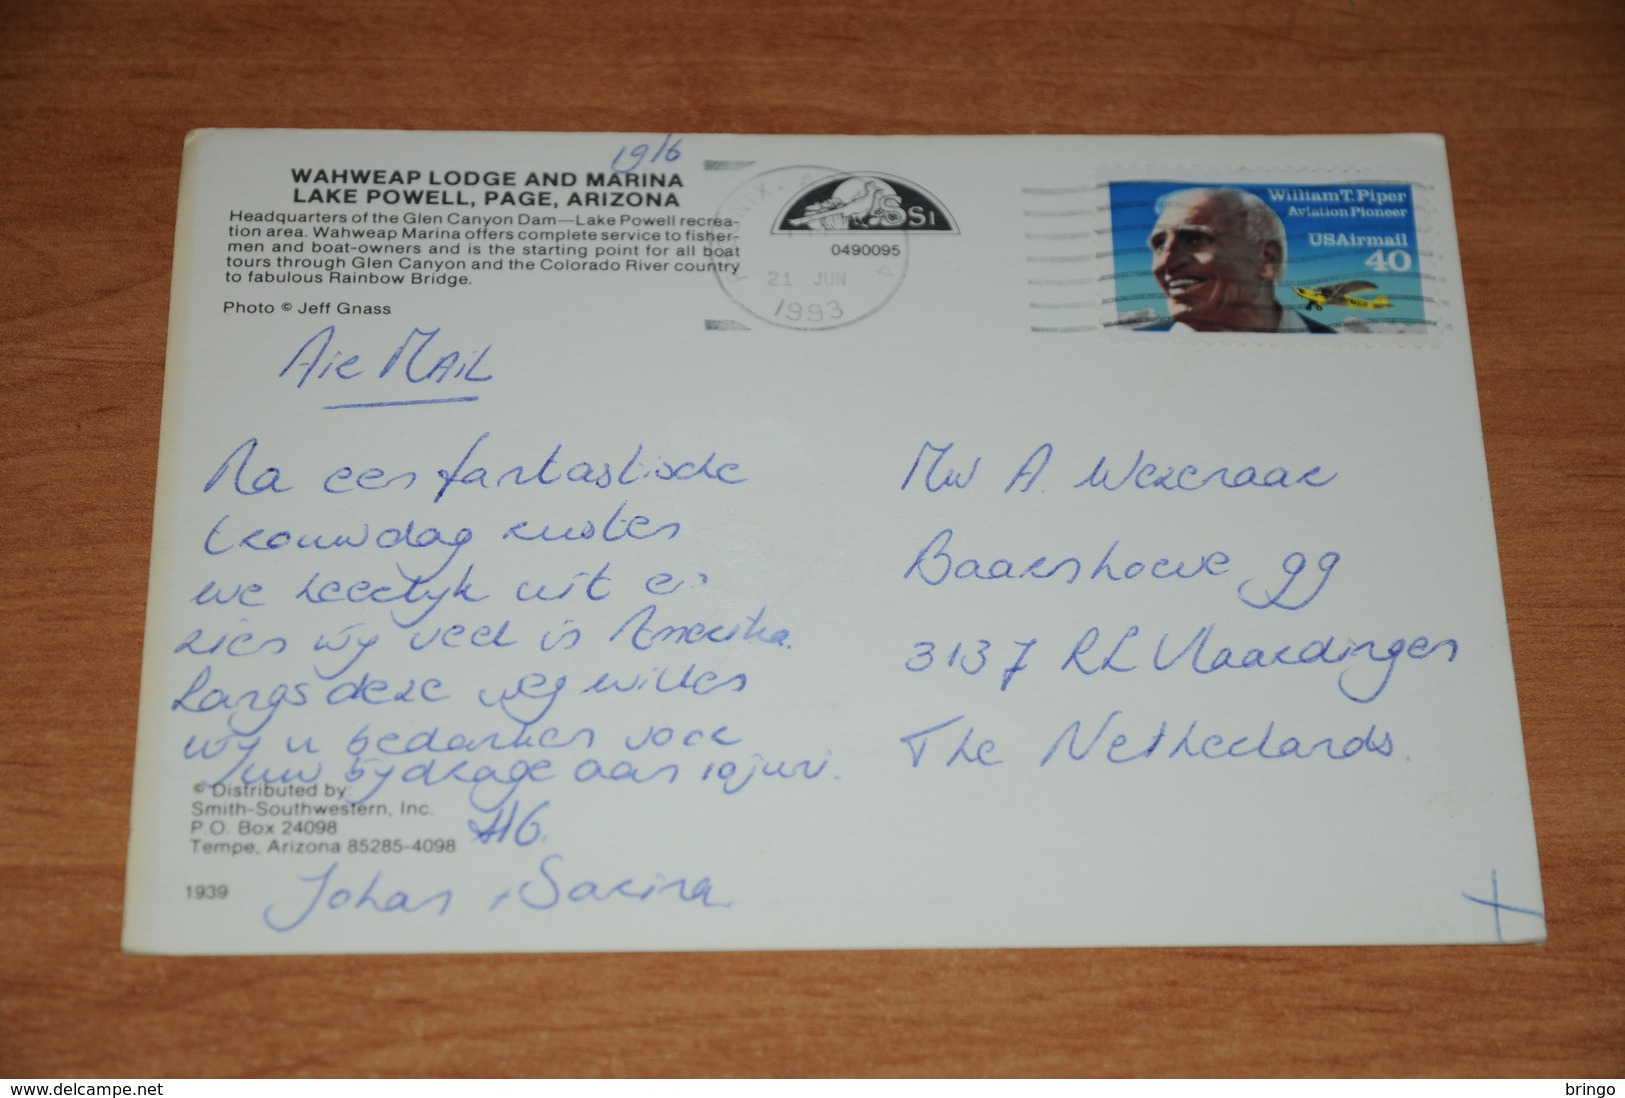 19/6
WAHWEAP LODGE AND MARINA
LAKE POWELL, PAGE, ARIZONA
Headquarters of the Glen Canyon Dam—Lake Powell recrea-
tion area. Wahweap Marina offers complete service to fisher-
men and boat-owners and is the starting point for all boat
tours through Glen Canyon and the Colorado River country
to fabulous Rainbow Bridge.
Photo © Jeff Gnass
SSI
0490095
21 JUN
1993
William T. Piper
Aviation Pioneer
USAirmail
40
Air Mail
Na een fantastische
trouwdag rusten
we heerlijk uit en
zien wij veel in Amerika.
Langs deze weg willen
wij u bedanken voor
uw bijdrage aan 10 juni.
© Distributed by:
Smith-Southwestern, Inc.
P.O. Box 24098
Tempe, Arizona 85285-4098
1939
Johan + Sarina
Mw A.
Baarshoeve 99
3137 RL Vlaardingen
The Netherlands.
bringo
www.delcampe.net